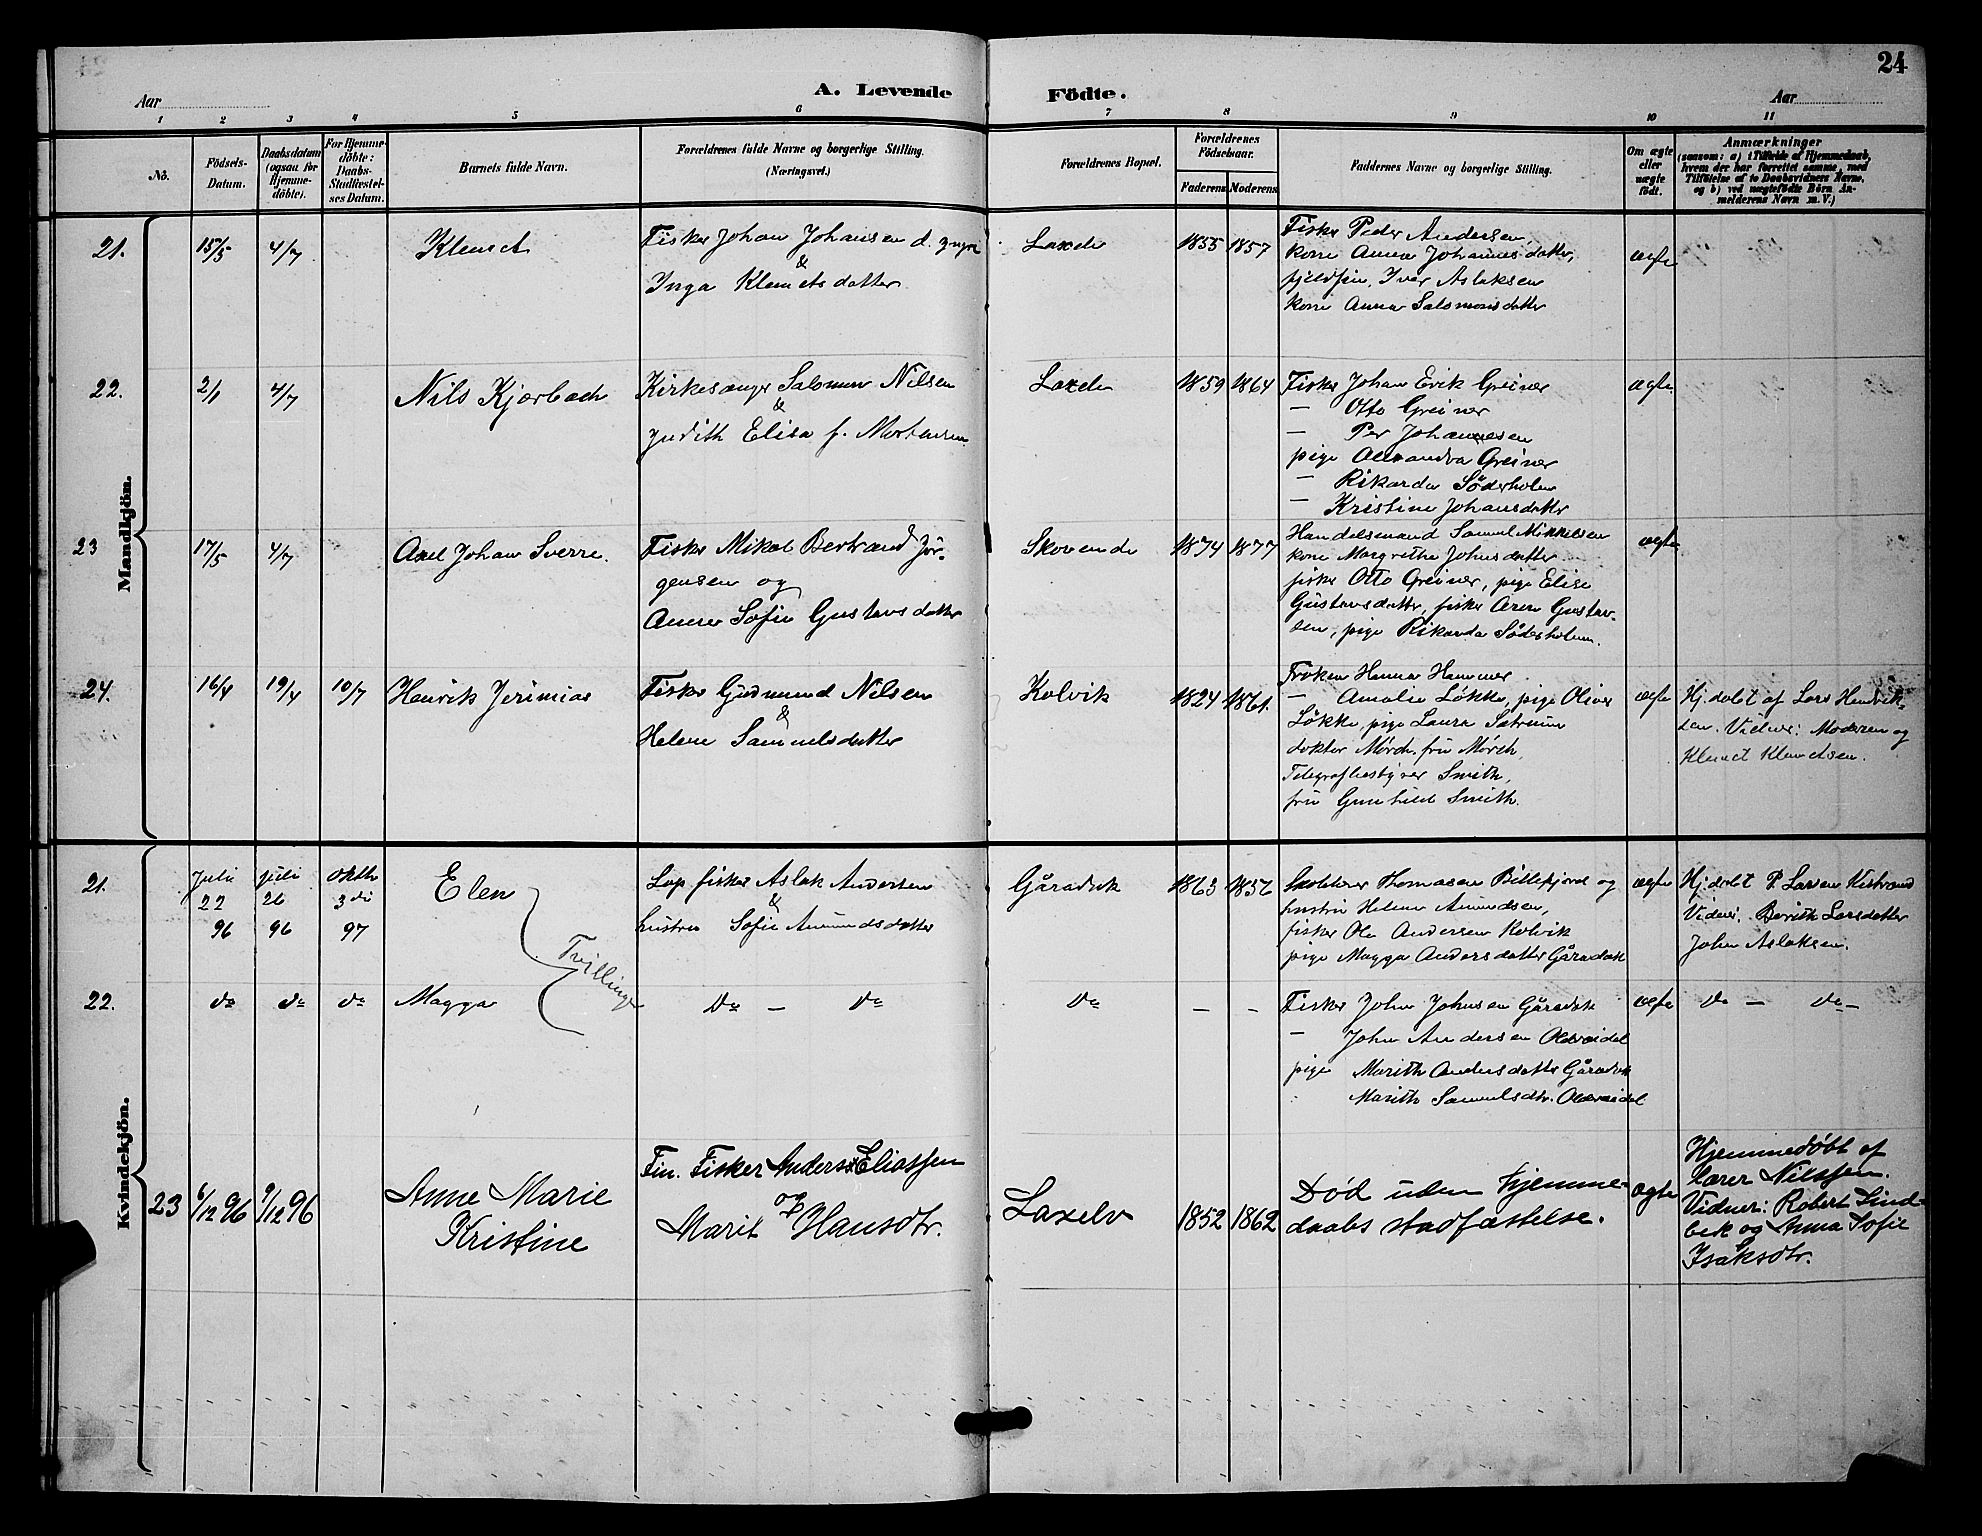 24
A. Levende Födte.
Aar
Aar
1 2 3 4 5 6 7 8 9 10 11
No.
Födsels-Datum.
Daabsdatum (ogsaa for Hjemmedöbte).
For Hjemmedöbte: Daabs-Stadfæstelses Datum.
Barnets fulde Navn.
Forældrenes fulde Navne og borgerlige Stilling. (Næringsvei.)
Forældrenes Bopæl.
Forældrenes Födselsaar.
Faderens Moderens
Faddernes Navne og borgerlige Stilling.
Om ægte eller uægte födt.
Anmærkninger
(saasom: a) i Tilfælde af Hjemmedaab, hvem der har forrettet samme, med Tilföielse af to Daabsvidners Navne, og b) ved uægtefödte Börn Anmelderens Navn m. V.)
Mandkjön.
21. 15/5 4/7
Klemet
Fisker Johan Johansen d. yngre
&
Inga Klemetsdatter
Laxelv
1855 1857
Fisker Peder Andersen,
kone Anna Johannesdatter,
fjeldfin Iver Aslaksen
kone Anna Salomonsdatter
ægte
22. 2/6 4/7
Nils Kjærbech
Kirkesanger Salomon Nilsen
&
Judith Elisa f. Mortensen
Laxelv
1859 1864
Fisker Johan Erik Greiner
— Otto Greiner
— Per Johannesen
pige Alexandra Greiner
— Rikarda Söderholm
— Kristine Johansdatter
ægte
23 17/5 4/7
Axel Johan Sverre.
Fisker Mikal Bertrand Jör-
gensen og
Anna Sofie Gustavsdatter
Skovende
1874 1877
Handelsmand Samuel Mikkelsen
kone Margrethe Johnsdatter
fisker Otto Greiner, pige Elise
Gustavsdatter, fisker Aron Gustav-
sen, pige Rikarda Söderholm.
ægte
24. 16/4 19/4 10/7
Henrik Jerimias
Fisker Gudmund Nilsen
&
Helene Samuelsdatter
Kolvik
1824 1861.
Frøken Hanna Hammer
— Amalie Løkke, pige Olive
Løkke, pige Laura Sætrum
doktor Mørch, fru Mørch,
Telegrafbestyrer Smith,
fru Gunhild Smith.
ægte
Hj. døbt af Lars Henrik-
sen. Vidner: Moderen og
Klemet Klemetsen.
Kvindekjön.
21. Juli 22 96 juli 26 96 oktbr 3die 97
Elen
Tvillinger
Lap fisker Aslak Andersen
&
hustru Sofie Amundsdatter
Gåradak
1863 1856
Thomasen Billefjord og
hustru Helene Amundsen,
fisker Ole Andersen Kolvik
pige Magga Andersdatter Gåradak
ægte
Hj. døbt P. Larsen Kistrand
Vidner. Berith Larsdatter
John Aslaksen.
22. do do do
Magga
Do — do
do
— —
Fisker John Johnsen Gåradak
— John Andersen
pige Marith Andersdatter Gåradak
Marith Samuelsdtr.
ægte
do — do —
23 6/12 96 9/12 96
Anne Marie
Kristine
Fin. Fisker Anders Eliassen
og
Marit Hansdtr.
Laxelv
1852 1862
Død uden hjemme-
daabs stadfæstelse.
ægte
Hjemmedøbt af
lærer Nilssen.
Vidner: Robert Lind-
bek og Anna Sofie
Isaksdtr.